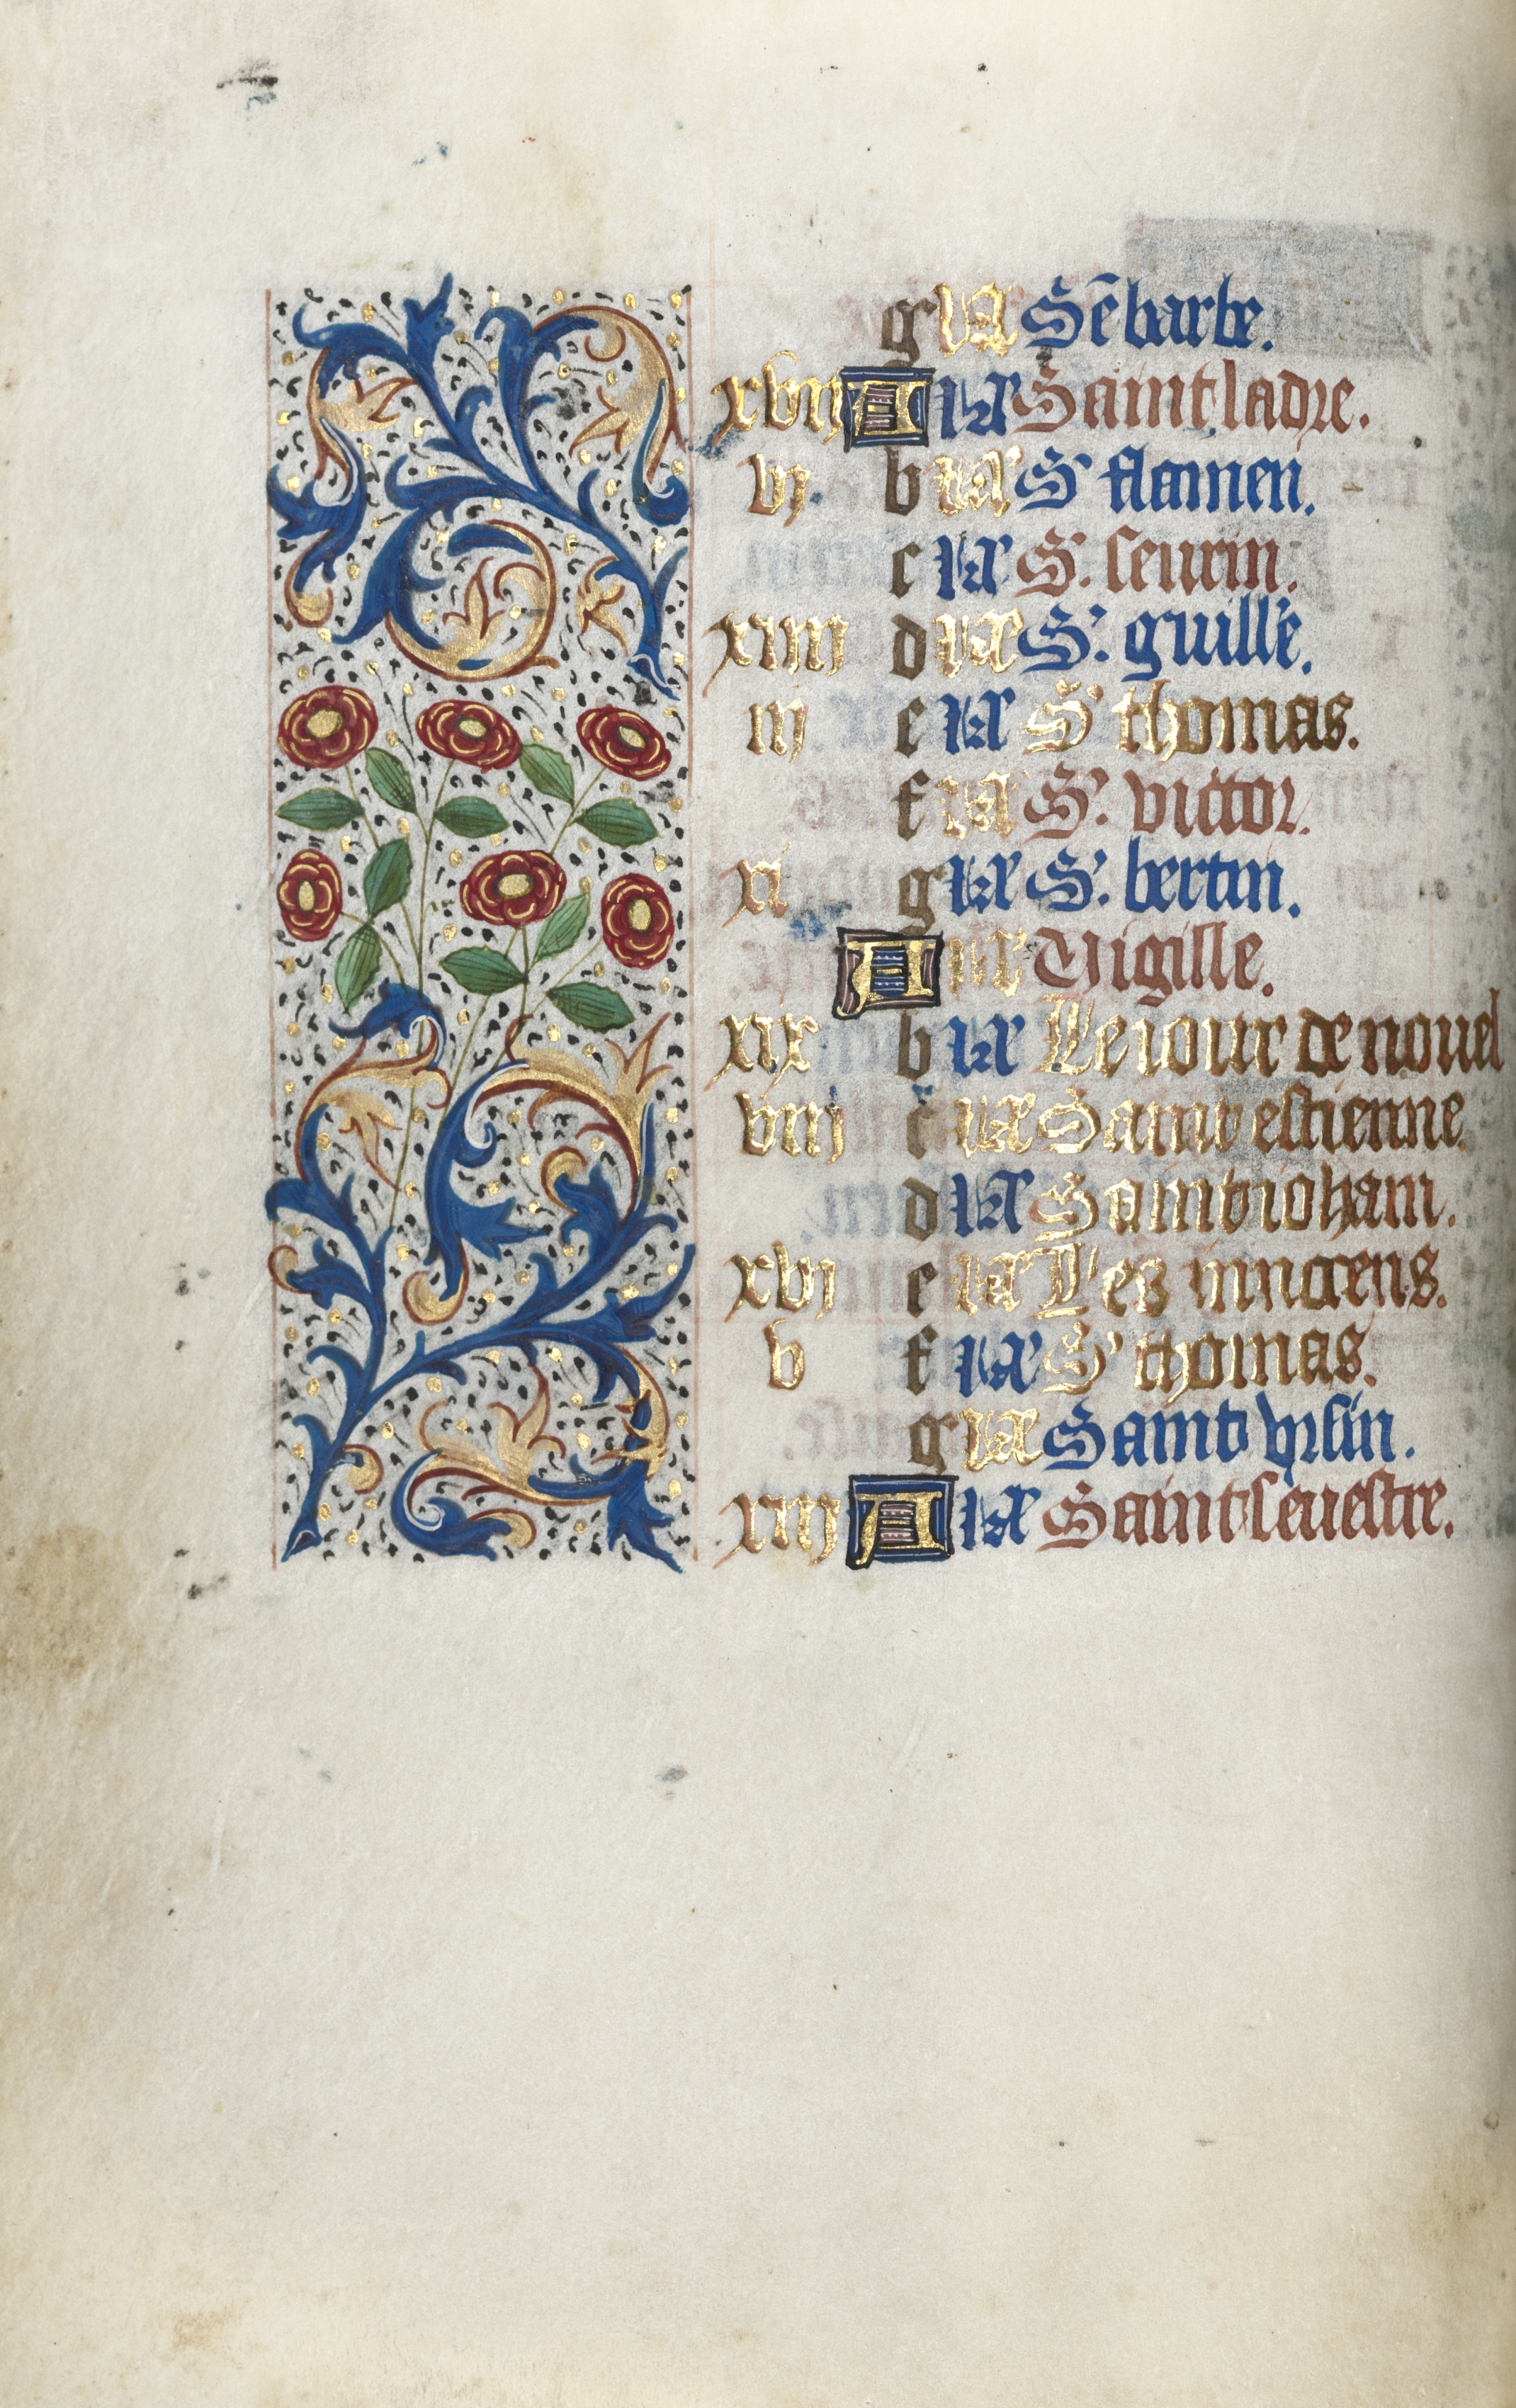 g ix Sē barbe.
xvij A ix Saint ladre.
vj b ix S' flamen.
c ix S'. seurin.
xiiij d ix S'. guille.
iij e ix S' thomas.
f ix S'. victor.
xi g ix S'. bertin.
A ix Vigille.
xix b ix Le iour de nouel
viij c ix Saint estienne
d ix Saint iohan.
xvj e ix Les innocens.
v f ix S' thomas.
g ix Saint vrsin.
xiij A ix Saint seuestre.